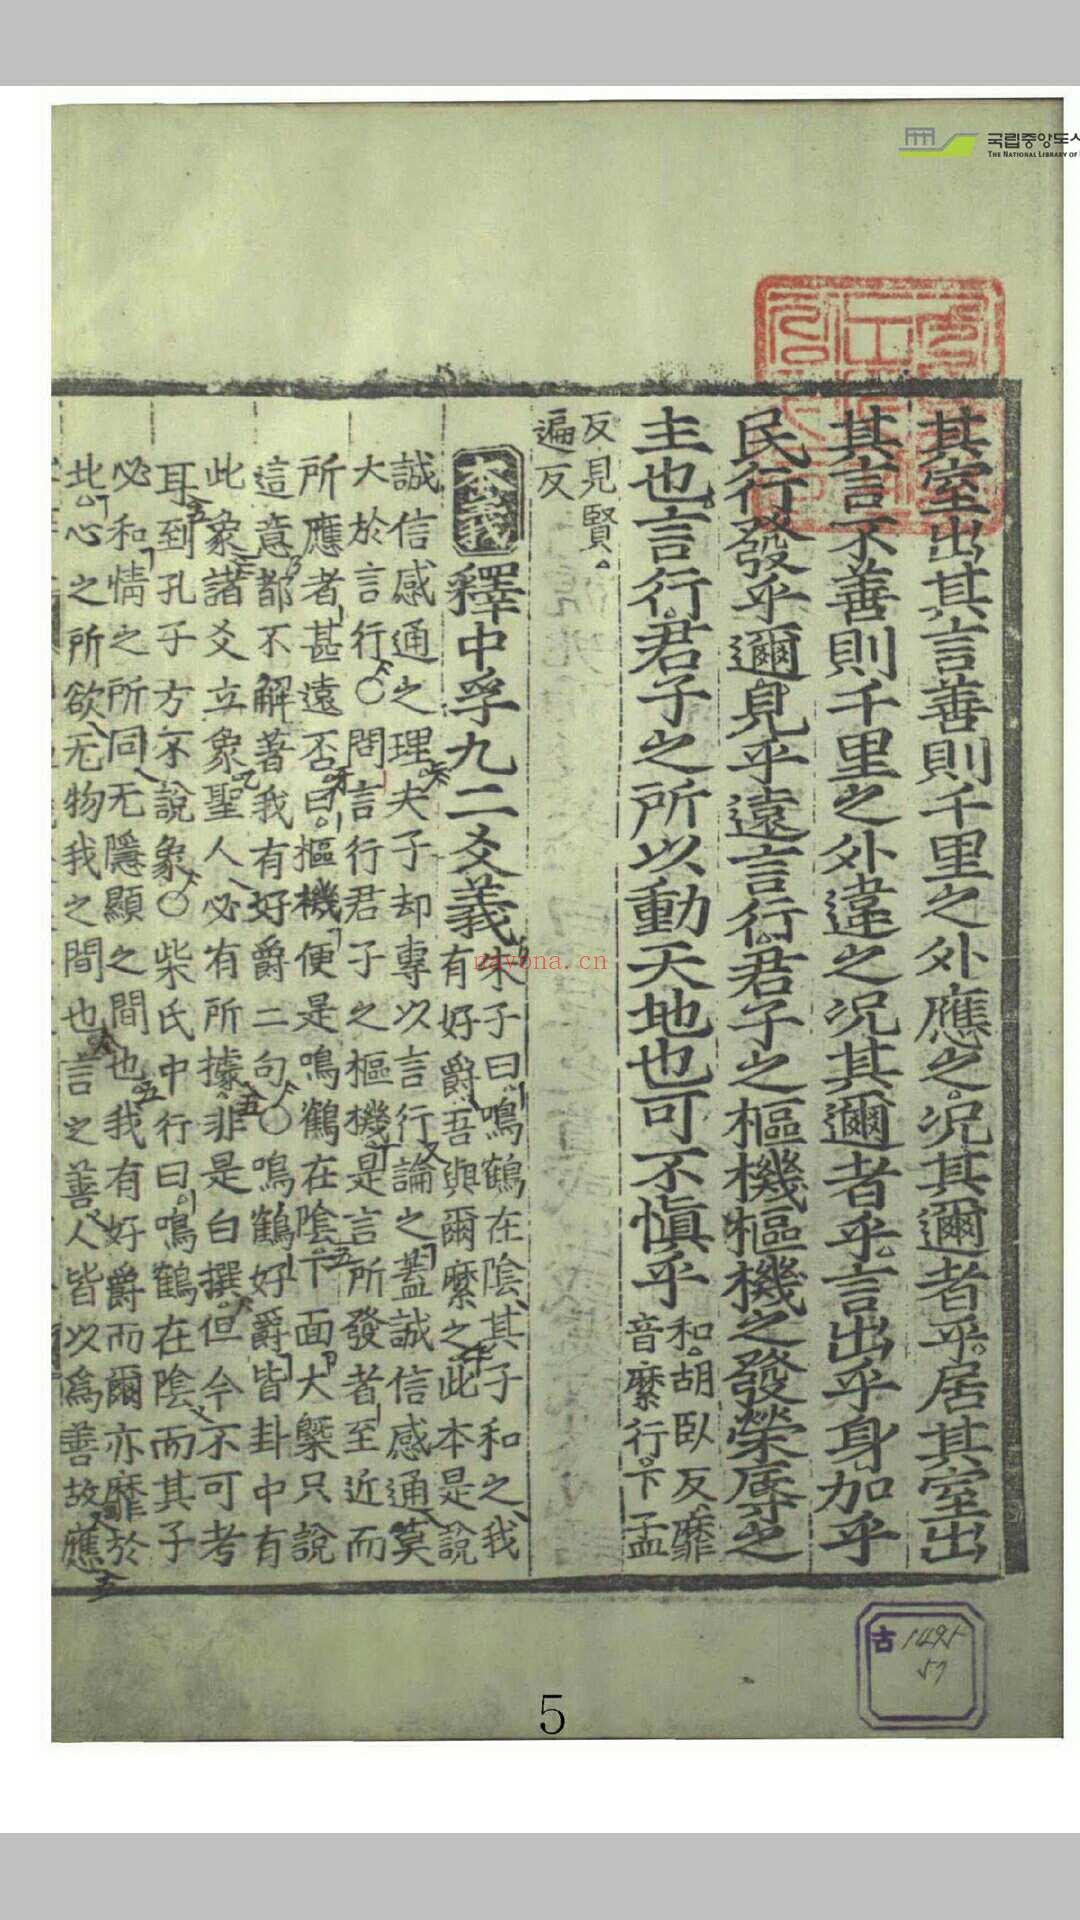 국립중앙도서
THE NATIONAL LIBRARY OF
其室出其言善則千里之外應之況其邇者乎居其室出
其言不善則千里之外違之況其邇者乎言出乎身加乎
民行發乎邇見乎遠言行君子之樞機樞機之發榮辱之
主也言行君子之所以動天地也可不慎乎
和胡臥反靡
音縻行下孟
反見賢
遍反
本義
釋中孚九二爻義
朱子曰鳴鶴在陰其子和之我
有好爵吾與爾縻之此本是說
誠信感通之理夫子却專以言行論之蓋誠信感通莫
大於言行○問言行君子之樞機是言所發者至近而
所應者甚遠否曰樞機便是鳴鶴在陰下面大槩只說
這意都不解著我有好爵二句○鳴鶴好爵皆卦中有
此象諸爻立象聖人必有所據非是白撰但今不可考
耳到孔子方不說象○柴氏中行曰鳴鶴在陰而其子
必和情之所同无隱顯之間也我有好爵而爾亦靡於
此心之所欲无物我之間也言之善人皆以為善故應
nayona.cn
古 1495
57
5